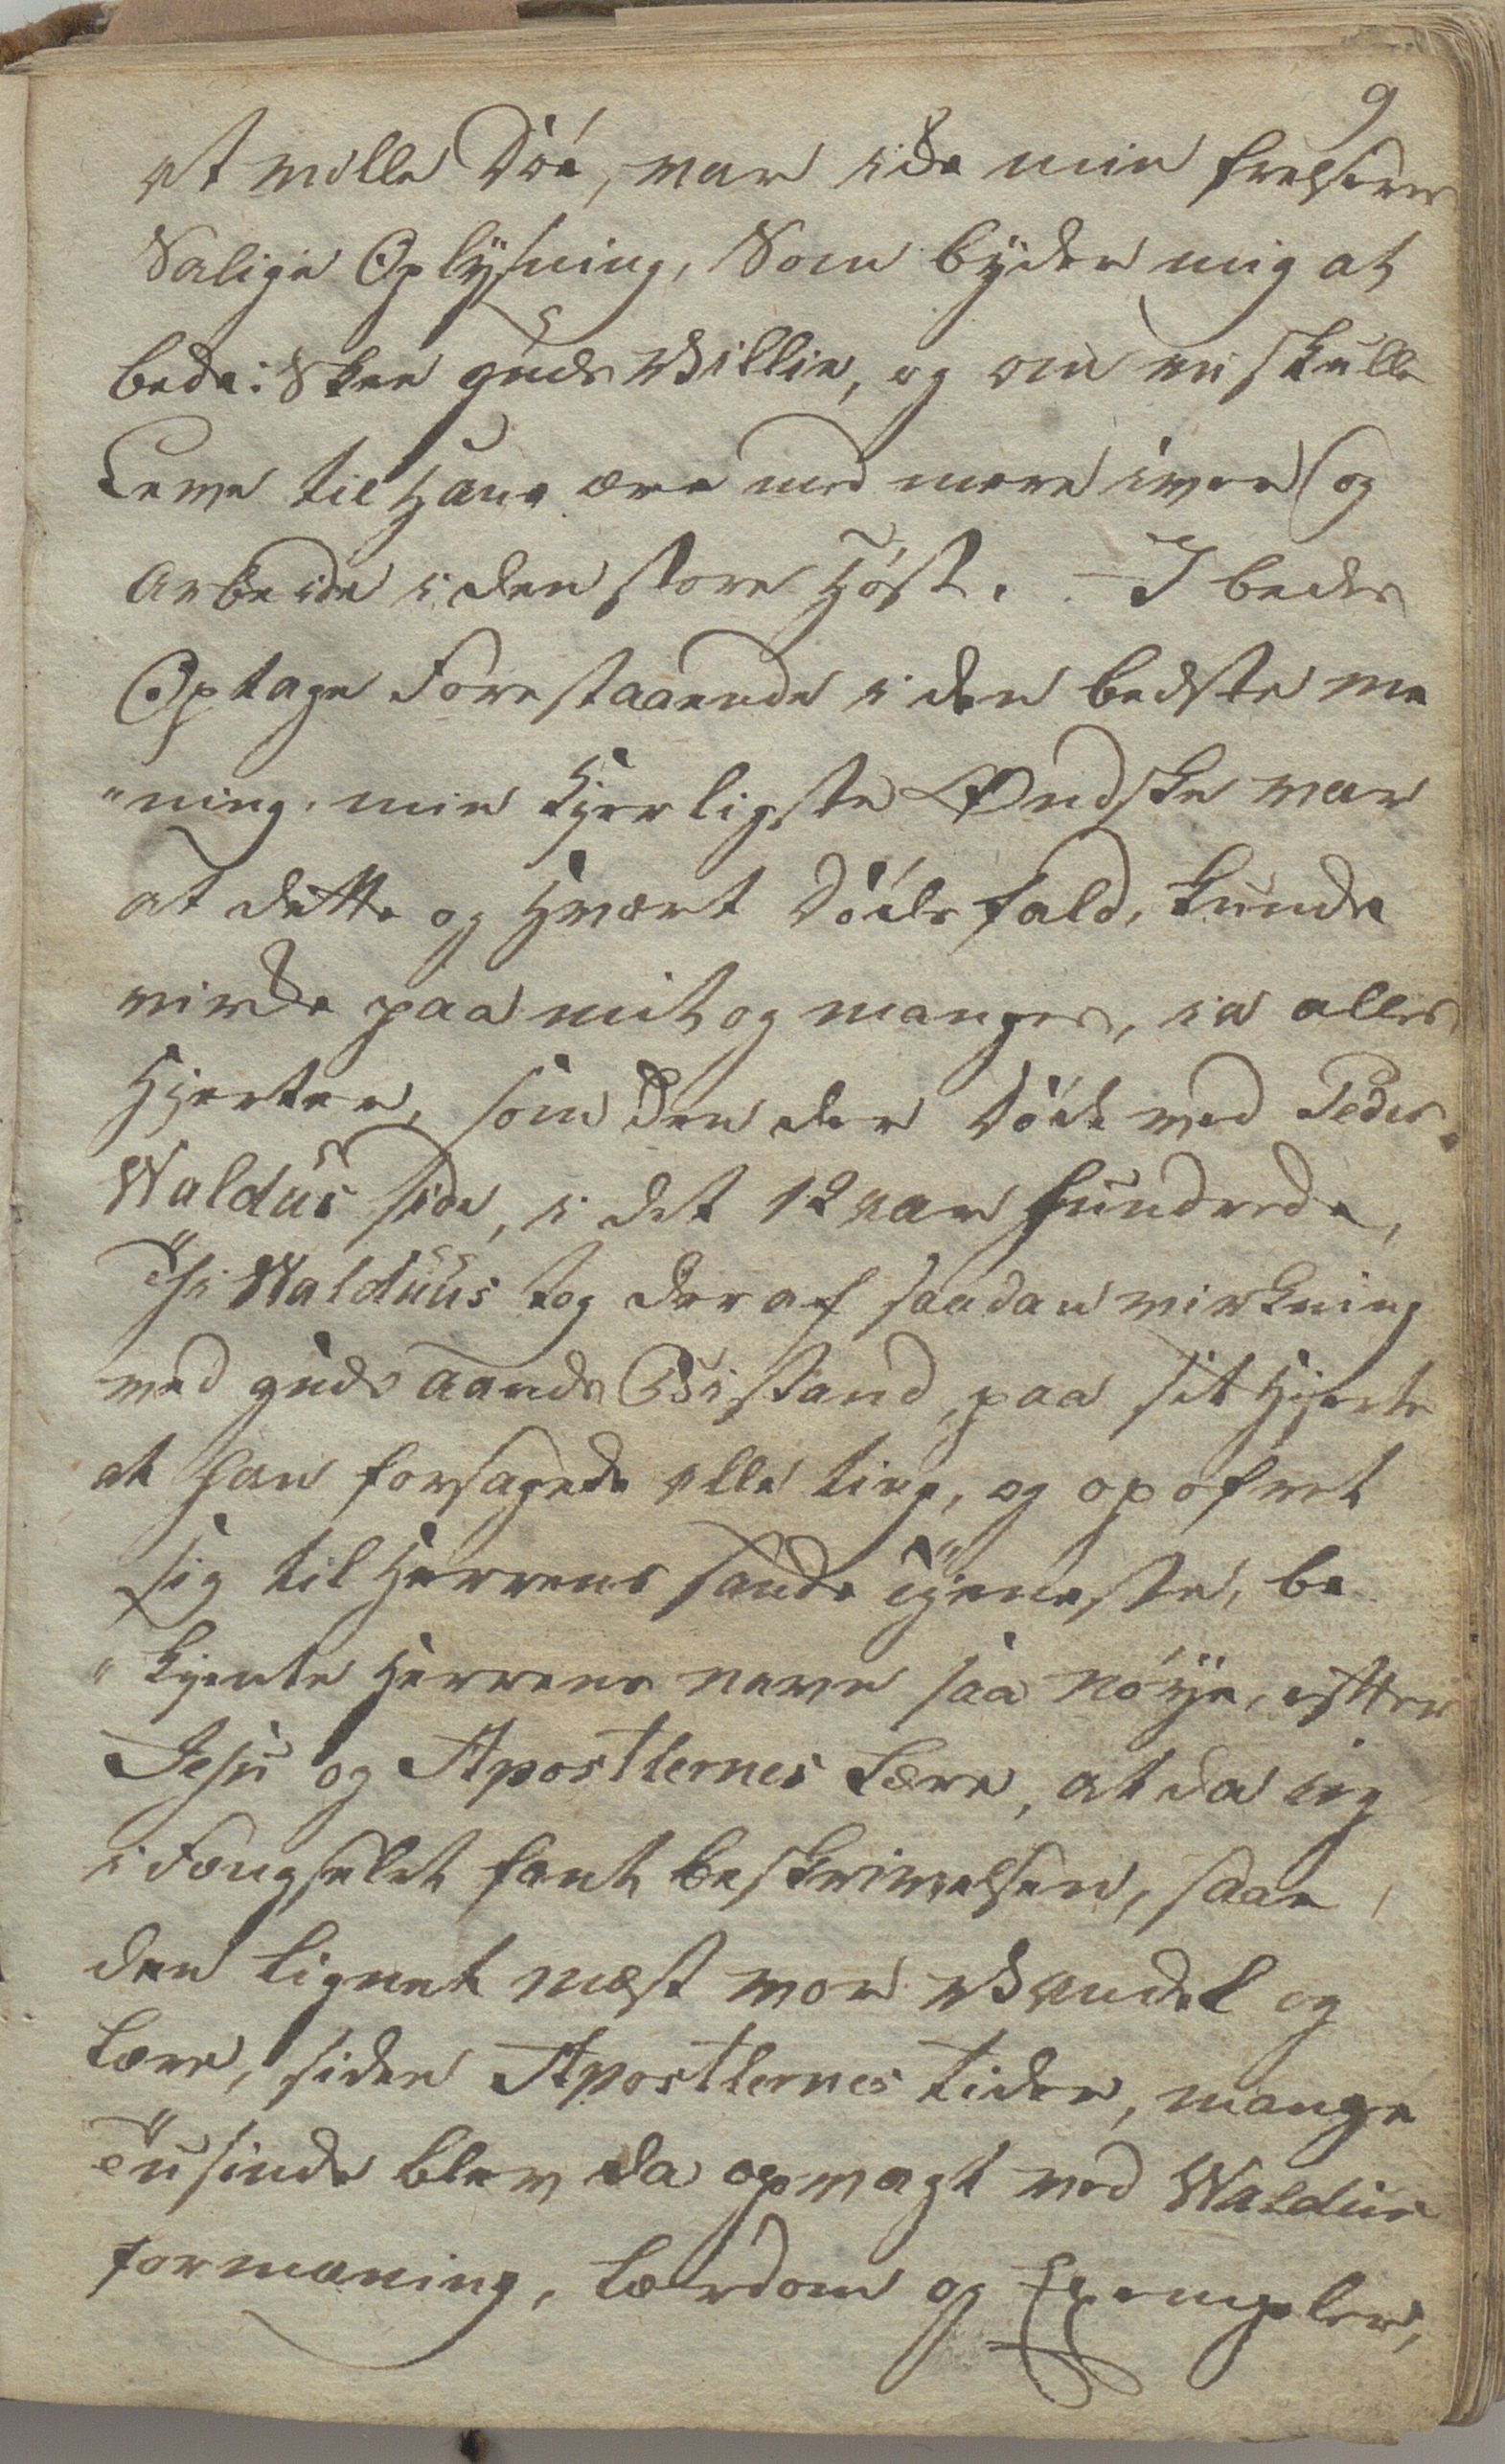 9
at ville Döe, var icke min frelseres
Salige Oplÿsning, Som bÿder mig at
bede: Skee guds Villie, og om vi skulle
Leve til Hans ære med mere iver og
Arbeide i den store Höst. I bedes
Optage Forestaaende i den bedste me
"ning. min Kjerligste Ønske var
at dette og Hvert Döds fald, kunde
virke paa mit og manges, ia alles
Hjerter, som Den der Döde ved Peder
Waldus side, i det 12 aar hundrede,
Thi Walduus tog der af saadan virkning
ved guds aands Bistand, paa sit Hjerte
at han forsagede alle ting, og opofret
sig til Herrens sande Tjeneste, be
"kjente Herrens navn saa nöÿe, efter
Jesu og Apostlernes Lære, at da ieg
i Fængselet fant beskrivelsen, saae
den Lignet mest vor Vandel og
Lære, siden Apostlernes tider, mange
Tusinde blev da opvagt ved Waldus
formaning, Lærdom og Exempler,